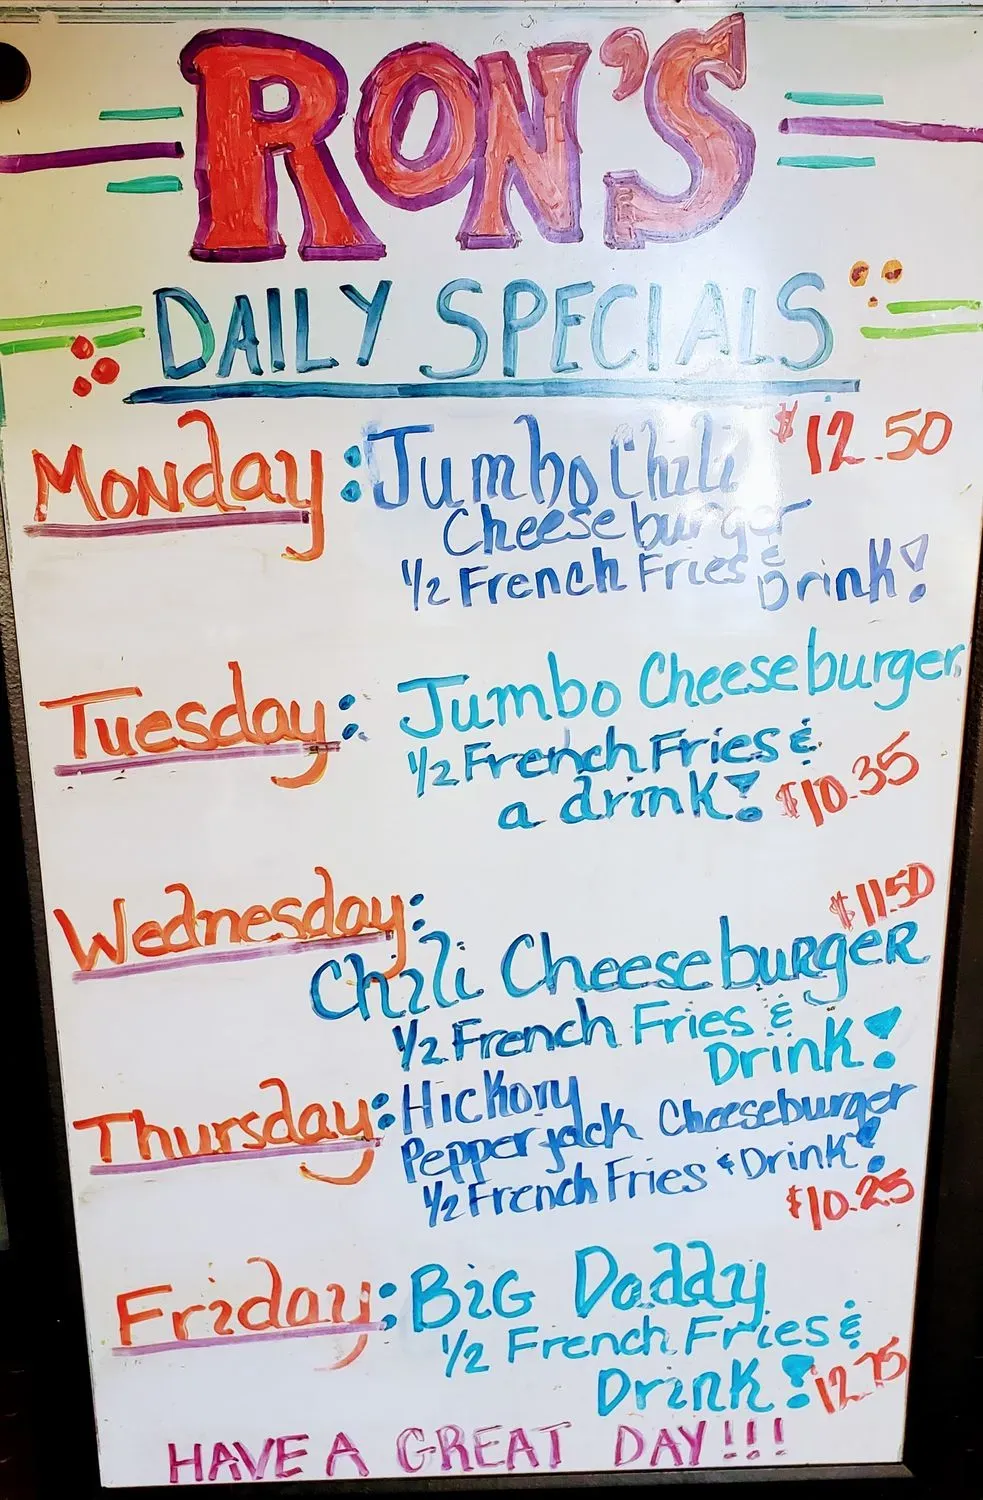 RON'S
DAILY SPECIALS
Monday: Jumbo Chili $12.50
Cheeseburger
1/2 French Fries &
Drink!
Tuesday: Jumbo Cheeseburger
1/2 French Fries &
a drink! $10.35
Wednesday: $11.50
Chili Cheeseburger
1/2 French Fries &
Drink!
Thursday: Hickory
Pepperjack Cheeseburger
1/2 French Fries & Drink!
$10.25
Friday: BiG Daddy
1/2 French Fries &
Drink! $12.75
HAVE A GREAT DAY!!!